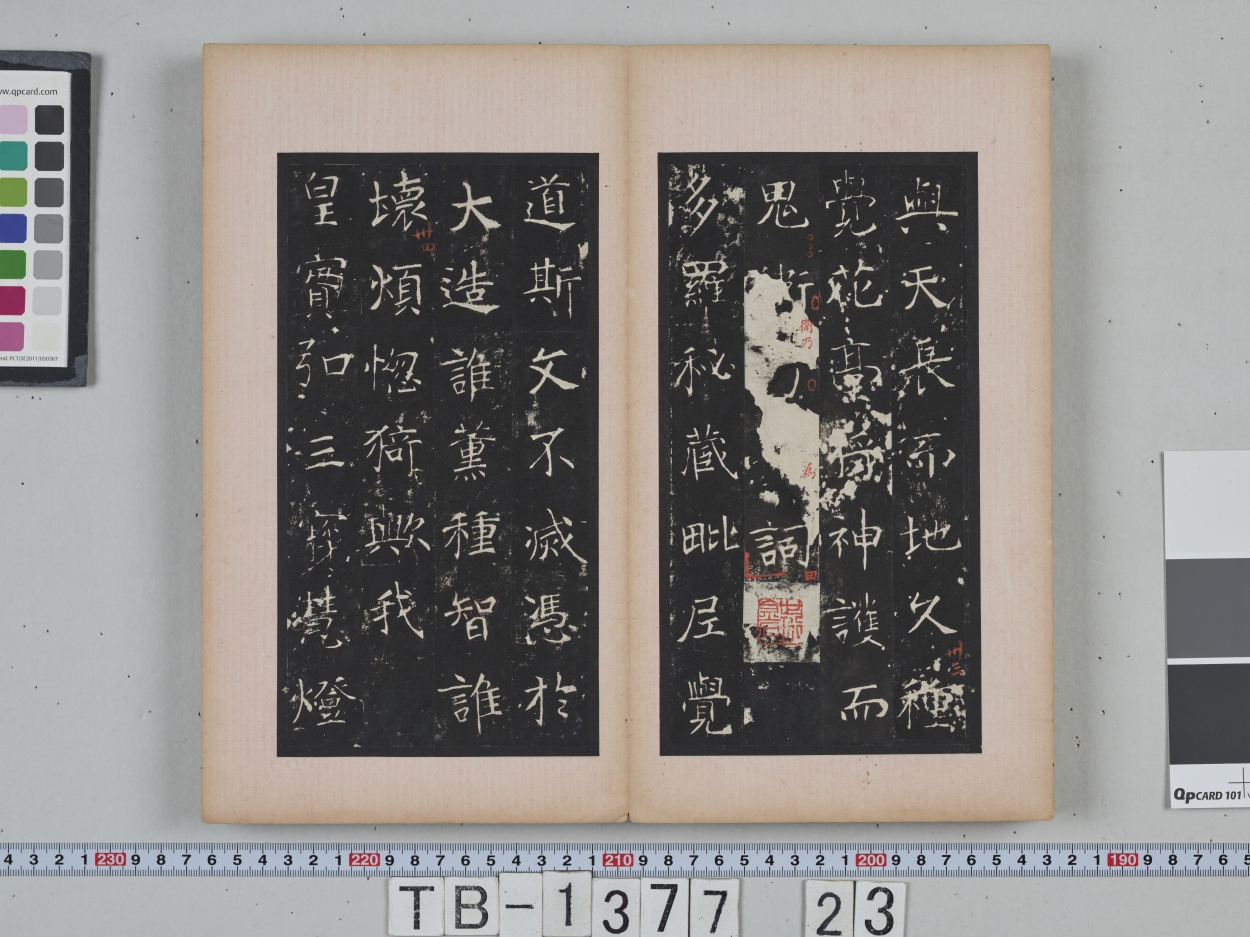 與天長而地久種
卅三
覺花臺將神護而
鬼衛
衛乃
為
詞
多羅秘藏毗尼覺
道斯文不滅憑於
大造誰薰種智誰
壞煩惱猗歟我
卅四
皇實弘三寶慧燈
www.qpcard.com
QPCARD 101
4 3 2 1 230 9 8 7 6 5 4 3 2 1 220 9 8 7 6 5 4 3 2 1 210 9 8 7 6 5 4 3 2 1 200 9 8 7 6 5 4 3 2 1 190 9 8 7 6 5
TB-1377 23